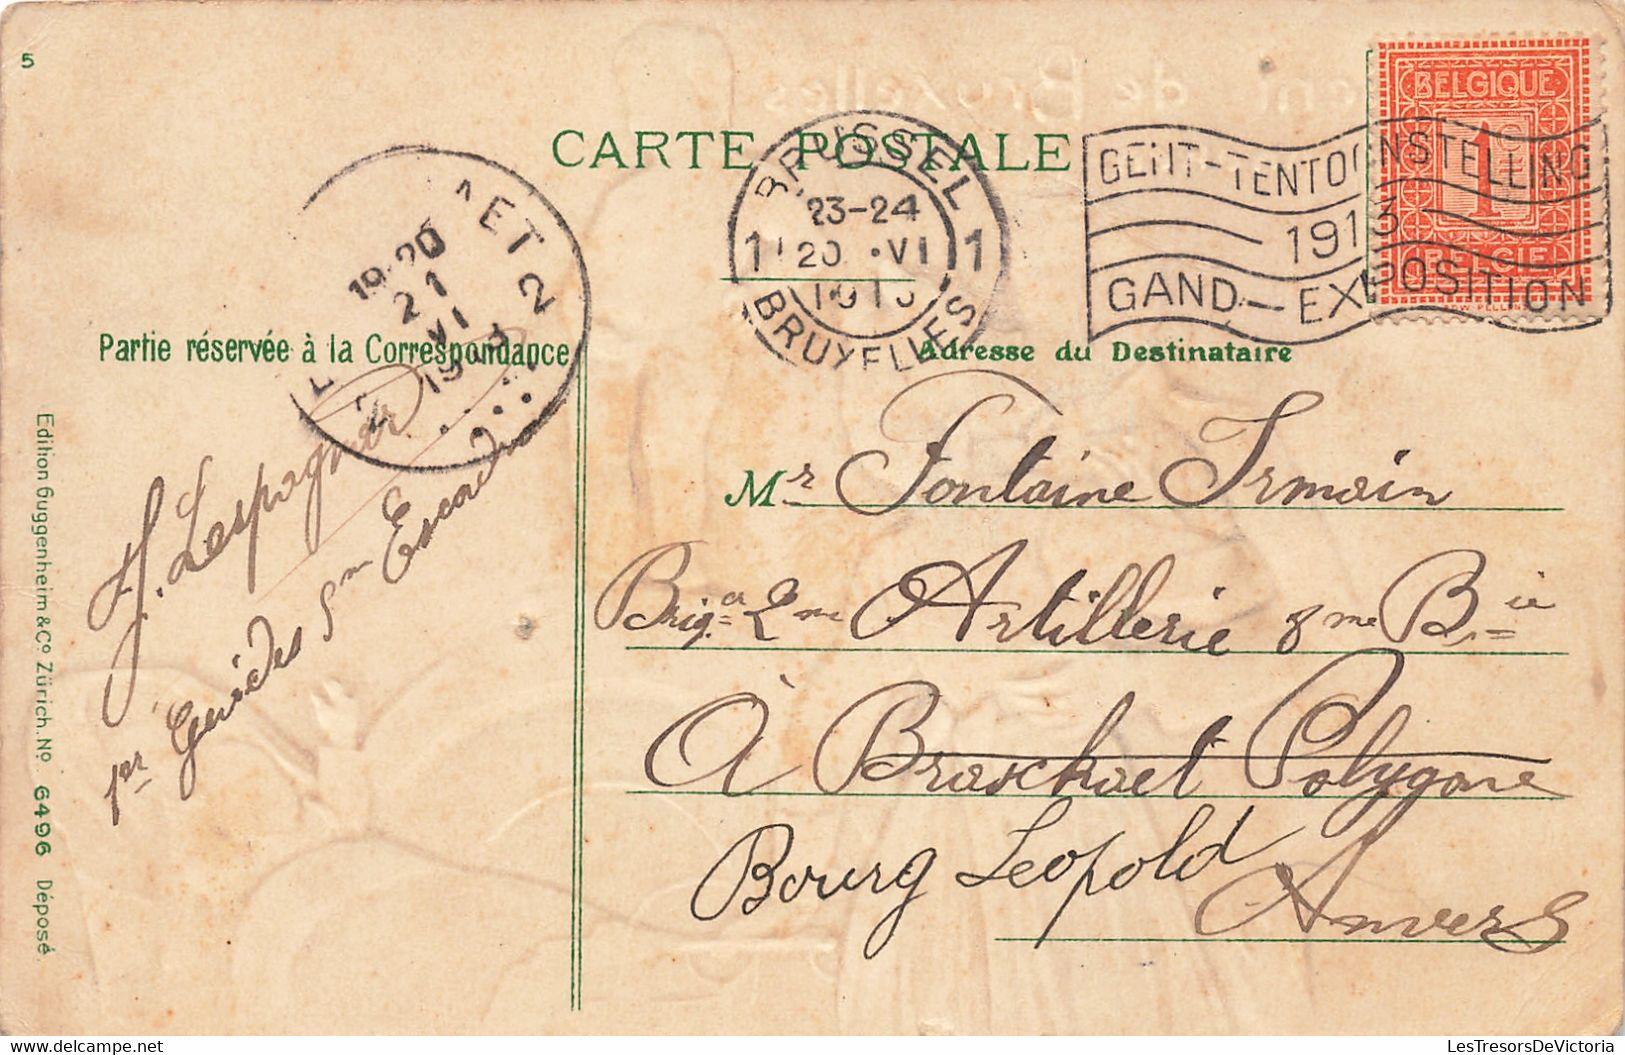 5
CARTE POSTALE
BRUSSEL
23-24
1 20 ·VI 1
BRUXELLES
GENT-TENTOONSTELLING
1913
GAND-EXPOSITION
BELGIQUE
1
BELGIE
19-20
21
VI
2
Partie réservée à la Correspondance
Adresse du Destinataire
Mr Fontaine Irmain
Briga 2me Artillerie 8me Bie
À Braschaet Polygone
Bourg Leopold
Anvers
H. Lespagnard
1er Guides 5me Escadron
Edition Guggenheim & Co Zürich. No. 6496 Déposé.
LesTresorsDeVictoria
delcampe.net